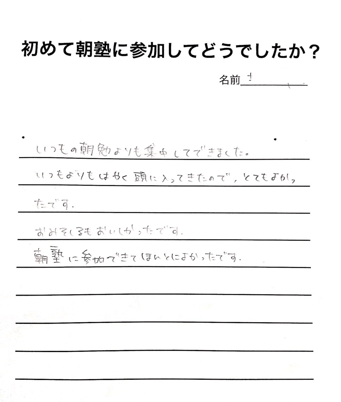 初めて朝塾に参加してどうでしたか?
名前
いつもの朝勉よりも集中してできました。
いつもよりもはやく頭に入ってきたので、とてもよかっ
たです。
おみそしるもおいしかったです。
朝塾に参加できてほんとによかったです。